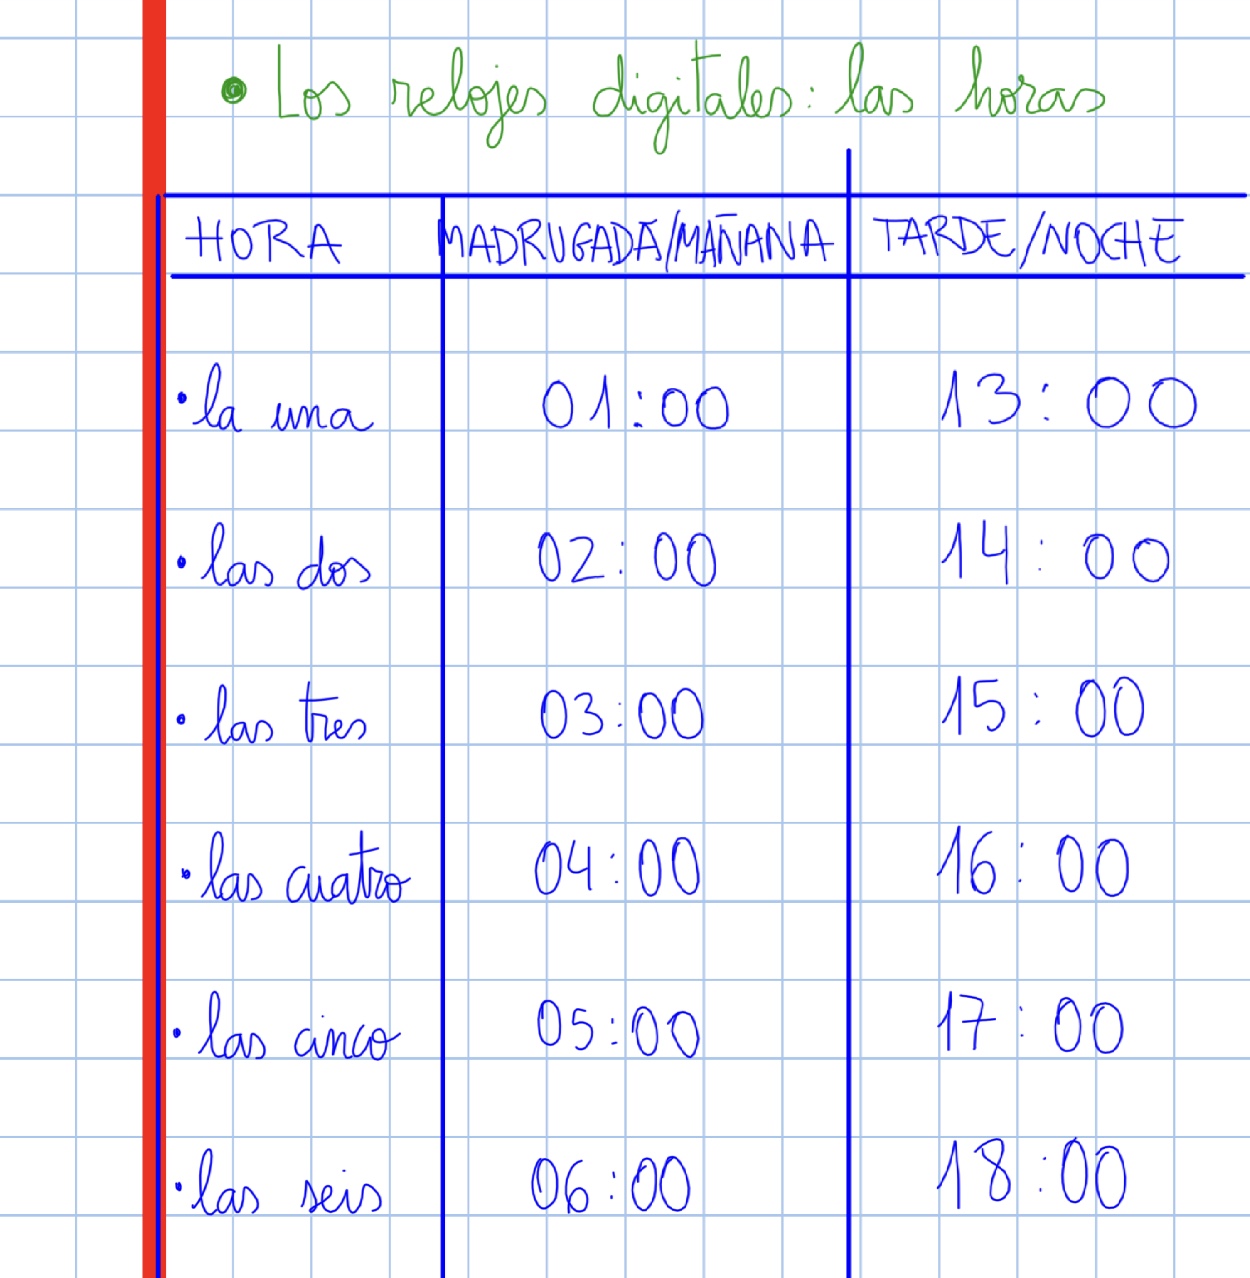 • Los relojes digitales: las horas
HORA MADRUGADA/MAÑANA TARDE/NOCHE
• la una 01:00 13:00
• las dos 02:00 14:00
• las tres 03:00 15:00
• las cuatro 04:00 16:00
• las cinco 05:00 17:00
• las seis 06:00 18:00